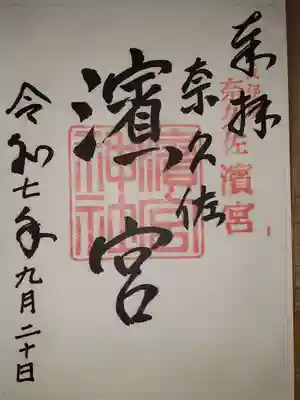 奉拝
奈久佐濱宮
奈久佐
濱宮
濱宮神社
令和七年九月二十日